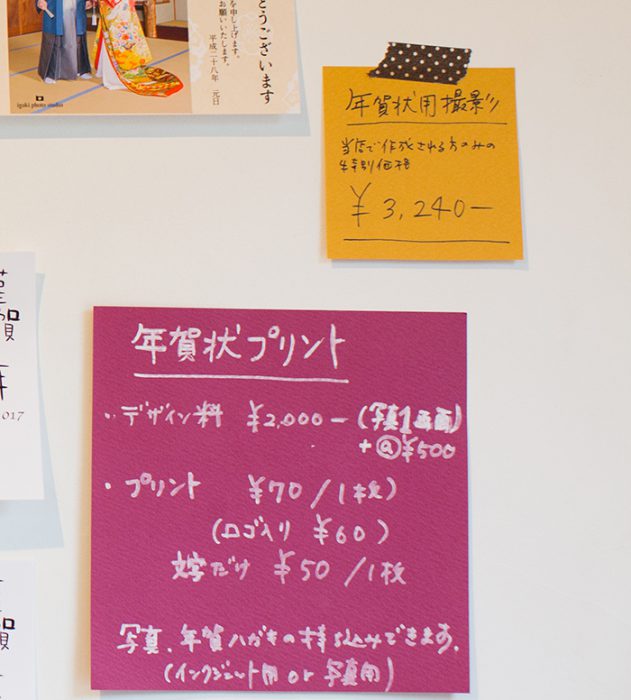 とうございます
を申し上げます。
お願いいたします。
平成二十八年 元日
igaki photo studio
年賀状用撮影
当店で作成される方のみの
特別価格
¥3,240−
賀
2017
年賀状プリント
・デザイン料 ¥2,000−(写真1画面)
+@¥500
・プリント ¥70/1枚)
(ロゴ入り ¥60)
文字だけ ¥50/1枚
写真、年賀ハガキの持ち込みできます。
(インクジェット用or写真用)